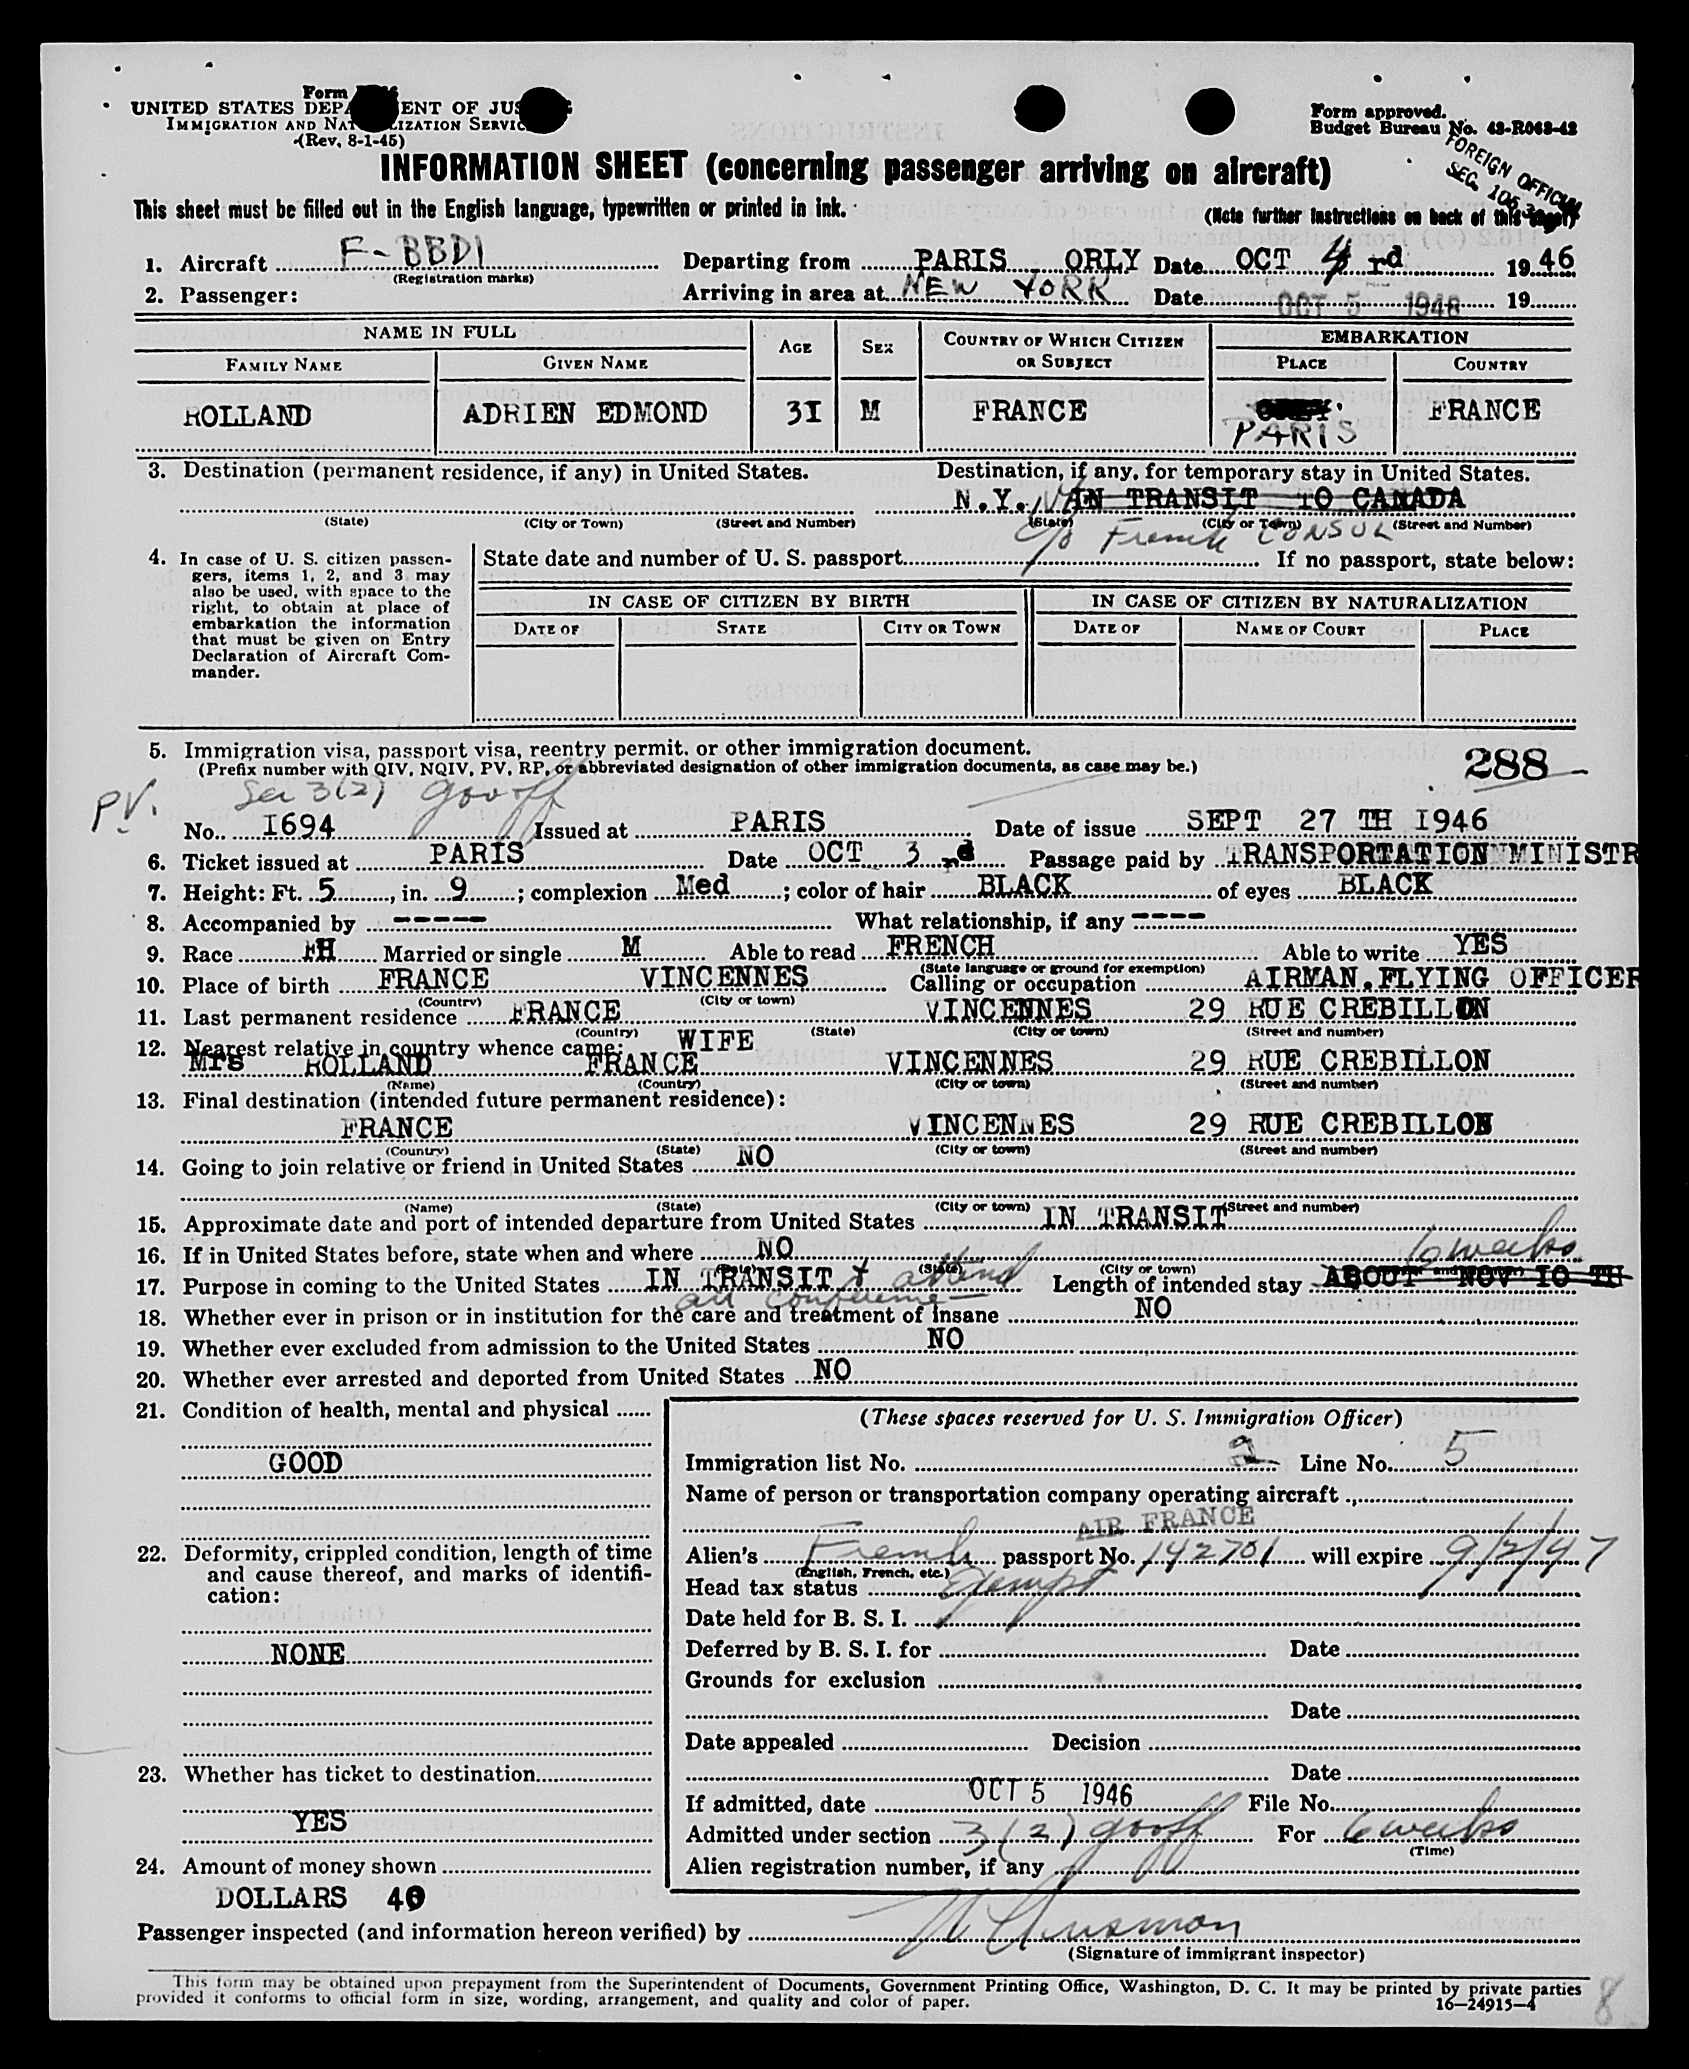 Form
UNITED STATES DEPA ENT OF JUS
IMMIGRATION AND NAT LIZATION SERVIC
(Rev. 8-1-45)
Form approved.
Budget Bureau No. 43-R063-42
FOREIGN OFFICIAL
SEC.
INFORMATION SHEET (concerning passenger arriving on aircraft)
This sheet must be filled out in the English language, typewritten or printed in ink.
(Note further instructions on back of this sheet)
1. Aircraft F-BBDI Departing from PARIS ORLY Date OCT 4 rd 1946
(Registration marks)
2. Passenger: Arriving in area at NEW YORK Date OCT 5 1946 19
NAME IN FULL AGE SEX COUNTRY OF WHICH CITIZEN OR SUBJECT EMBARKATION
FAMILY NAME GIVEN NAME PLACE COUNTRY
ROLLAND ADRIEN EDMOND 3I M FRANCE PARIS FRANCE
3. Destination (permanent residence, if any) in United States. Destination, if any, for temporary stay in United States.
N.Y. IN TRANSIT TO CANADA
(State) (City or Town) (Street and Number) (State) (City or Town) (Street and Number)
c/o French CONSUL
4. In case of U. S. citizen passengers, items 1, 2, and 3 may also be used, with space to the right, to obtain at place of embarkation the information that must be given on Entry Declaration of Aircraft Commander.
State date and number of U. S. passport If no passport, state below:
IN CASE OF CITIZEN BY BIRTH IN CASE OF CITIZEN BY NATURALIZATION
DATE OF STATE CITY OR TOWN DATE OF NAME OF COURT PLACE
5. Immigration visa, passport visa, reentry permit, or other immigration document.
(Prefix number with QIV, NQIV, PV, RP, or abbreviated designation of other immigration documents, as case may be.)
288
PV. Sec 3(2) gooff
No. I694 Issued at PARIS Date of issue SEPT 27 TH I946
6. Ticket issued at PARIS Date OCT 3 rd Passage paid by TRANSPORTATION MINISTR
7. Height: Ft. 5, in. 9; complexion Med; color of hair BLACK of eyes BLACK
8. Accompanied by ----- What relationship, if any ----
9. Race FH Married or single M Able to read FRENCH Able to write YES
(State language or ground for exemption)
10. Place of birth FRANCE VINCENNES Calling or occupation AIRMAN.FLYING OFFICER
(Country) (City or town)
11. Last permanent residence FRANCE VINCENNES 29 RUE CREBILLON
(Country) (State) (City or town) (Street and number)
12. Nearest relative in country whence came: WIFE
Mrs ROLLAND FRANCE VINCENNES 29 RUE CREBILLON
(Name) (Country) (City or town) (Street and number)
13. Final destination (intended future permanent residence):
FRANCE VINCENNES 29 RUE CREBILLON
(Country) (State) (City or town) (Street and number)
14. Going to join relative or friend in United States NO
(Name) (State) (City or town) (Street and number)
15. Approximate date and port of intended departure from United States IN TRANSIT
16. If in United States before, state when and where NO
(State) (City or town)
6 weeks
17. Purpose in coming to the United States IN TRANSIT + attend Length of intended stay ABOUT NOV IO TH
air conference
18. Whether ever in prison or in institution for the care and treatment of insane NO
19. Whether ever excluded from admission to the United States NO
20. Whether ever arrested and deported from United States NO
21. Condition of health, mental and physical
GOOD
22. Deformity, crippled condition, length of time and cause thereof, and marks of identification:
NONE
23. Whether has ticket to destination
YES
24. Amount of money shown
DOLLARS 40
(These spaces reserved for U. S. Immigration Officer)
Immigration list No. 2 Line No. 5
Name of person or transportation company operating aircraft
AIR FRANCE
Alien's French passport No. 142701 will expire 9/2/47
(English, French, etc.)
Head tax status Exempt
Date held for B. S. I.
Deferred by B. S. I. for Date
Grounds for exclusion
Date
Date appealed Decision
Date
If admitted, date OCT 5 1946 File No.
Admitted under section 3(2) gooff For 6 weeks
(Time)
Alien registration number, if any
Passenger inspected (and information hereon verified) by
(Signature of immigrant inspector)
This form may be obtained upon prepayment from the Superintendent of Documents, Government Printing Office, Washington, D. C. It may be printed by private parties
provided it conforms to official form in size, wording, arrangement, and quality and color of paper.
16—24915-4
8